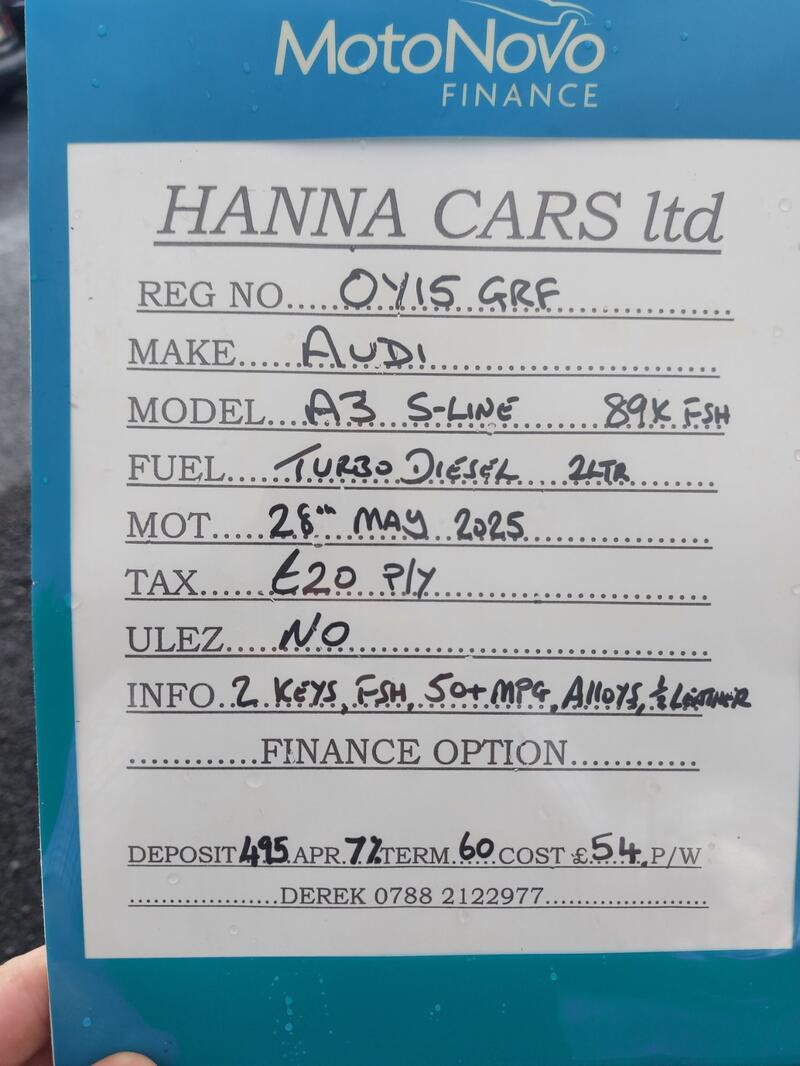 MotoNovo
FINANCE
HANNA CARS ltd
REG NO.....OY15 GRF
MAKE.....AUDI
MODEL...A3 S-LINE 89K FSH
FUEL.....TURBO DIESEL 2LTR
MOT.....28th MAY 2025
TAX......£20 P/Y
ULEZ.....NO
INFO..2 KEYS, FSH, 50+MPG, Alloys, ½ LEATHER
............FINANCE OPTION............
DEPOSIT 495.APR.7%TERM.60.COST £54.P/W
..................DEREK 0788 2122977....................